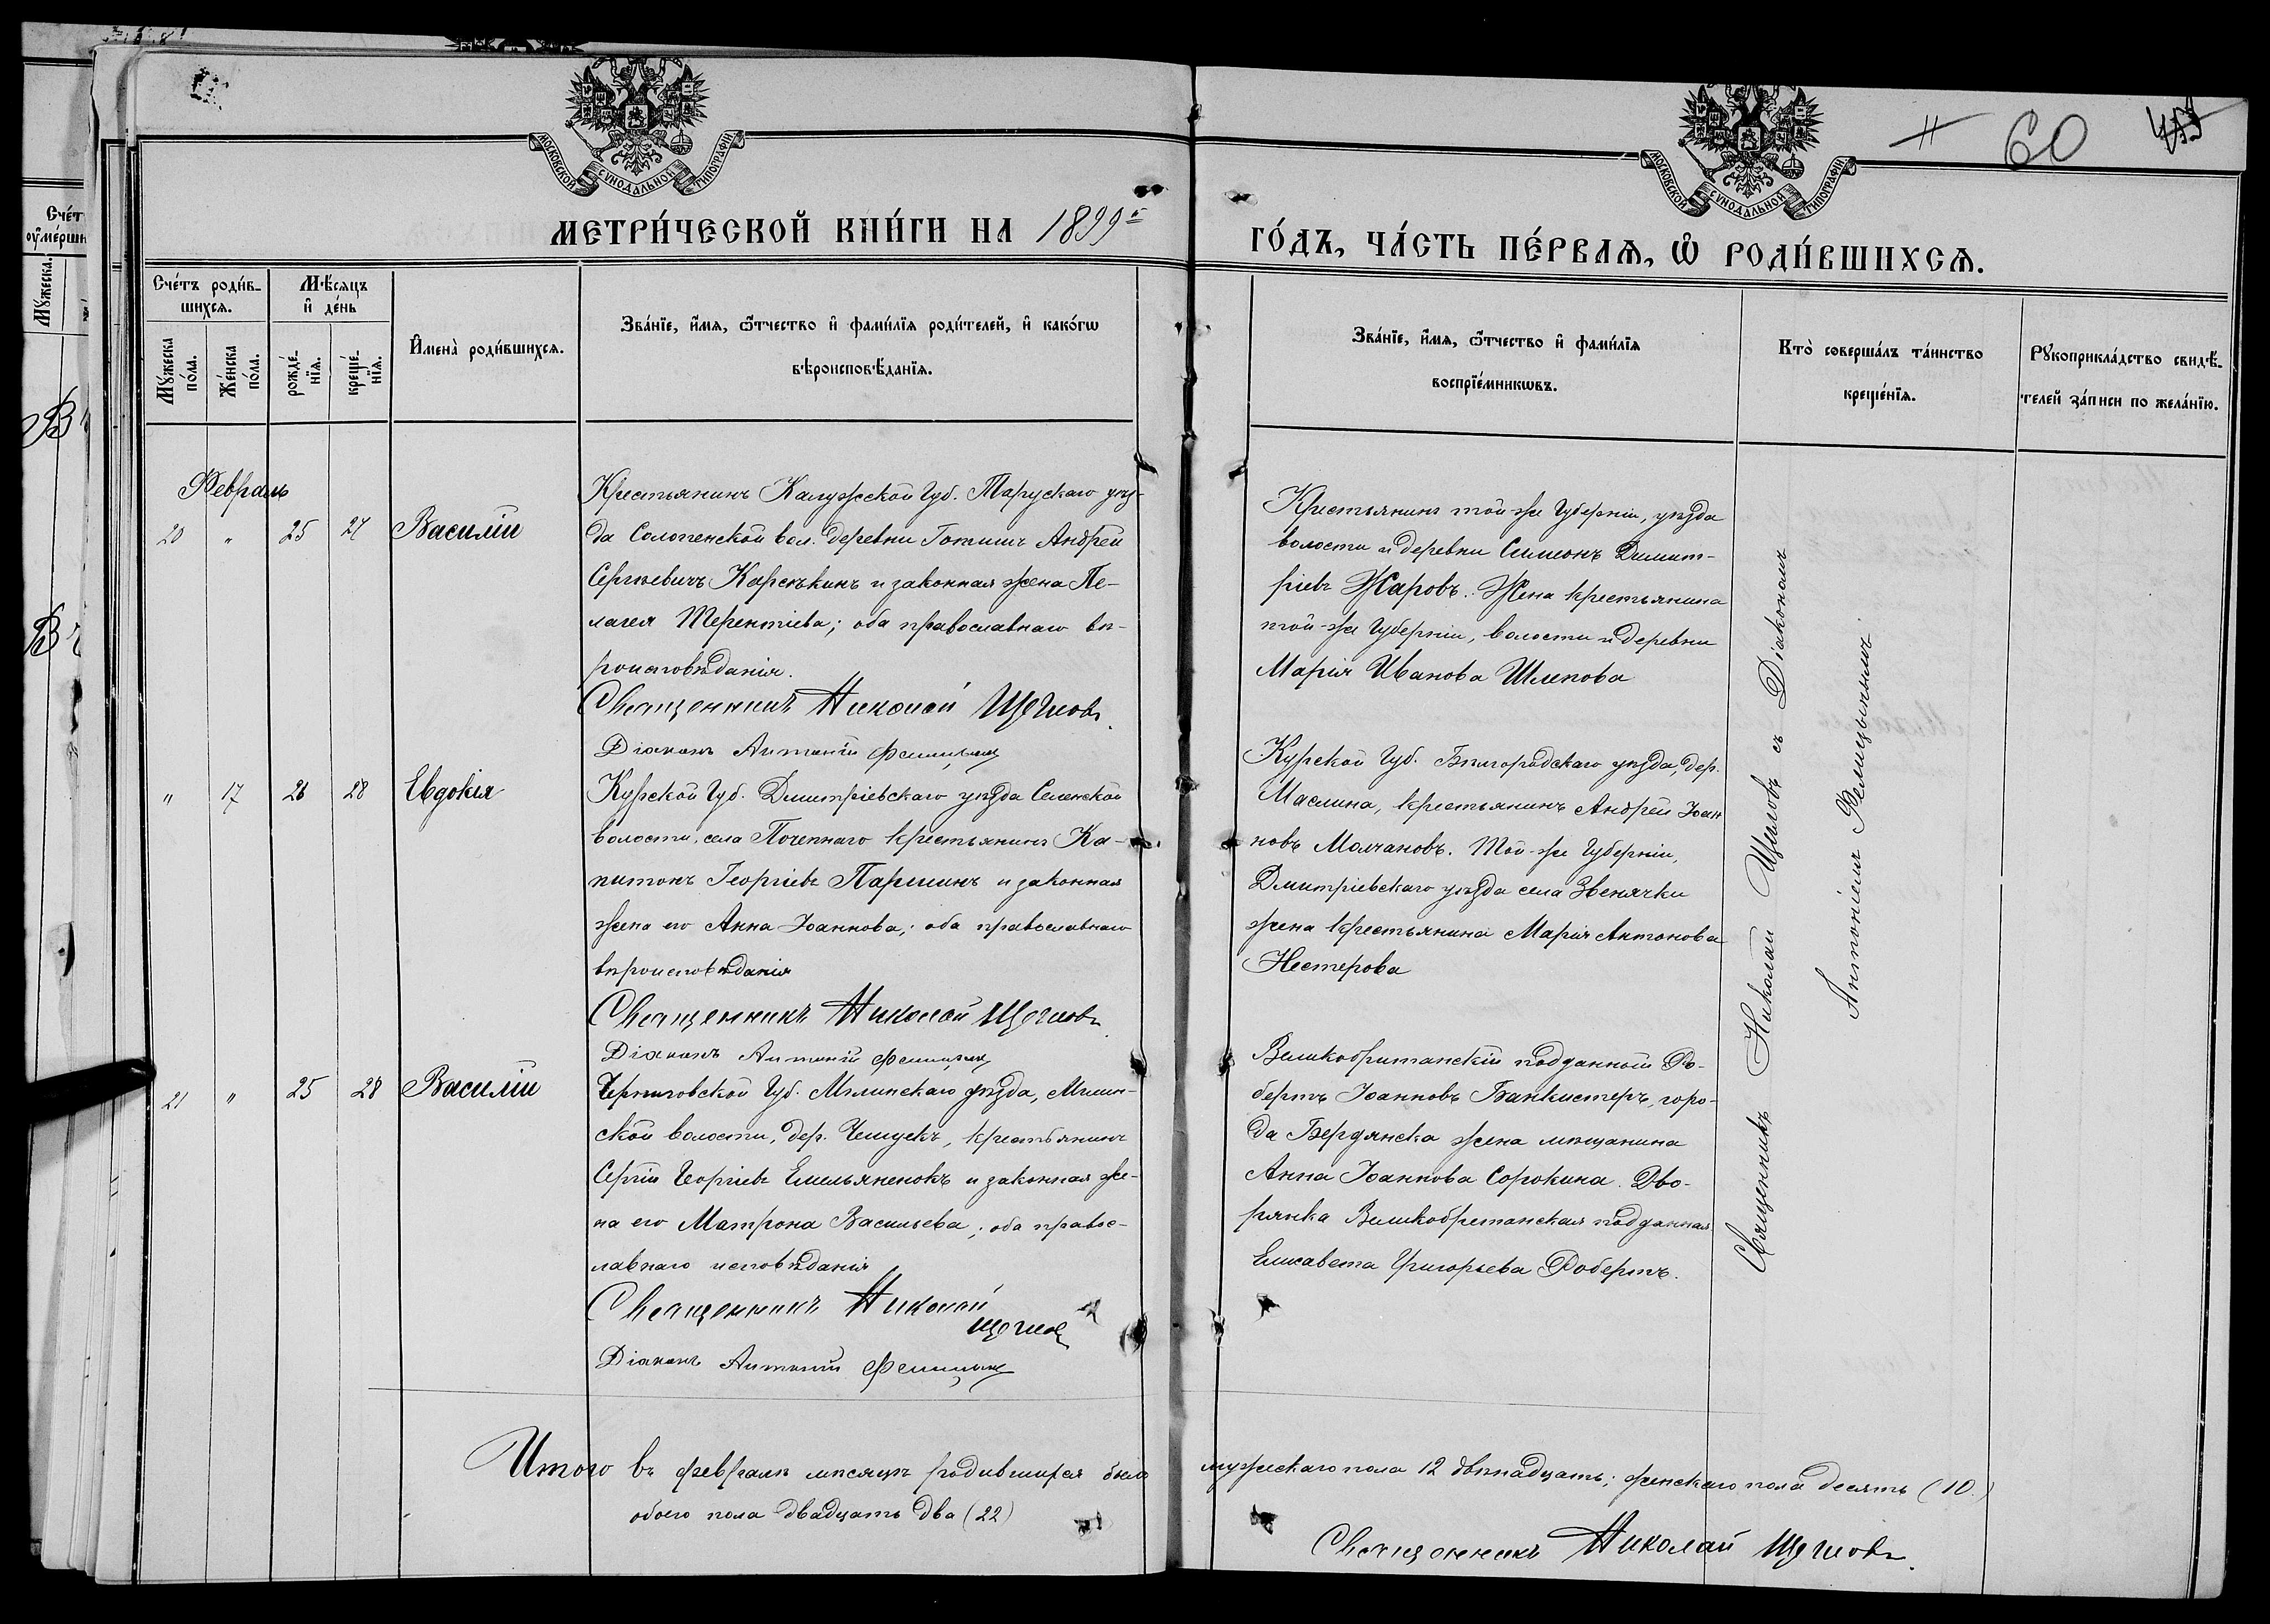 МОСКОВСКОЙ СѴНОДАЛЬНОЙ ТИПОГРАФІИ
МОСКОВСКОЙ СѴНОДАЛЬНОЙ ТИПОГРАФІИ
60
МЕТРИ́ЧЕСКОЙ КНИ́ГИ НА 1899 ГО́ДЪ, ЧА́СТЬ ПЕ́РВАѦ, Ѡ҆ РОДИ́ВШИХСѦ.
Сче́тъ
оу҆ме́рши
Мꙋ́жеска
Сче́тъ роди́в-
шихсѧ.
Мꙋ́жеска по́ла.
Же́нска по́ла.
Мѣ́сѧцъ
и҆ де́нь
рожде́-нїѧ.
креще́-нїѧ.
И҆мена̀ роди́вшихсѧ.
Зва́нїе, и҆́мѧ, ѻ҆́тчество и҆ фами́лїѧ роди́телей, и҆ како́гѡ
вѣроисповѣ́данїѧ.
Зва́нїе, и҆́мѧ, ѻ҆́тчество и҆ фами́лїѧ
воспрїе́мникѡвъ.
Кто̀ соверша́лъ та́инство
креще́нїѧ.
Рꙋкоприкла́дство свидѣ́-
телей за́писи по жела́нїю.
Февраль
20 " 25 27 Василій
Крестьянинъ Калужской Губ. Тарускаго уѣз-
да Солопенской вол. деревни Готищъ Андрей
Сергѣевичъ Карсѣкинъ и законная жена Пе-
лагея Терентіева; оба православнаго вѣ-
роисповѣданія.
Священникъ Николай Щегловъ.
Діаконъ Антоній Фелицынъ
Крестьянинъ той-же Губерніи, уѣзда
волости и деревни Симеонъ Димит-
ріевъ Жаровъ. Жена крестьянина
той-же Губерніи, волости и деревни
Марія Иванова Шлепова
" 17 26 28 Евдокія
Курской Губ. Дмитріевскаго уѣзда Селенской
волости, села Почепнаго крестьянинъ Ка-
питонъ Георгіевъ Паршинъ и законная
жена его Анна Іоаннова; оба православнаго
вѣроисповѣданія
Священникъ Николай Щегловъ.
Діаконъ Антоній Фелицынъ
Курской Губ. Бѣлгородскаго уѣзда, дер.
Маслина, крестьянинъ Андрей Іоан
новъ Молчановъ. Той-же Губерніи,
Дмитріевскаго уѣзда села Звенячки
жена крестьянина Марія Антонова
Нестерова
21 " 25 28 Василій
Черниговской Губ. Мглинскаго уѣзда, Мглин-
ской волости, дер. Чешуекъ, крестьянинъ
Сергій Георгіевъ Емельяненокъ и законная же-
на его Матрона Васильева; оба правос-
лавнаго исповѣданія
Священникъ Николай
Щегловъ
Діаконъ Антоній Фелицынъ
Великобританскій подданный Ро-
бертъ Іоанновъ Банкистеръ, горо-
да Бердянска жена мѣщанина
Анна Іоаннова Сорокина. Дво-
рянка Великобританская подданная
Елисавета Григорьева Робертъ.
Священникъ Николай Щегловъ съ Діакономъ
Антоніемъ Фелицынымъ.
Итого въ февралѣ мѣсяцѣ родившихся было мужескаго пола 12 двѣнадцать; женскаго пола десять (10.)
обоего пола двадцать два (22)
Священникъ Николай Щегловъ.